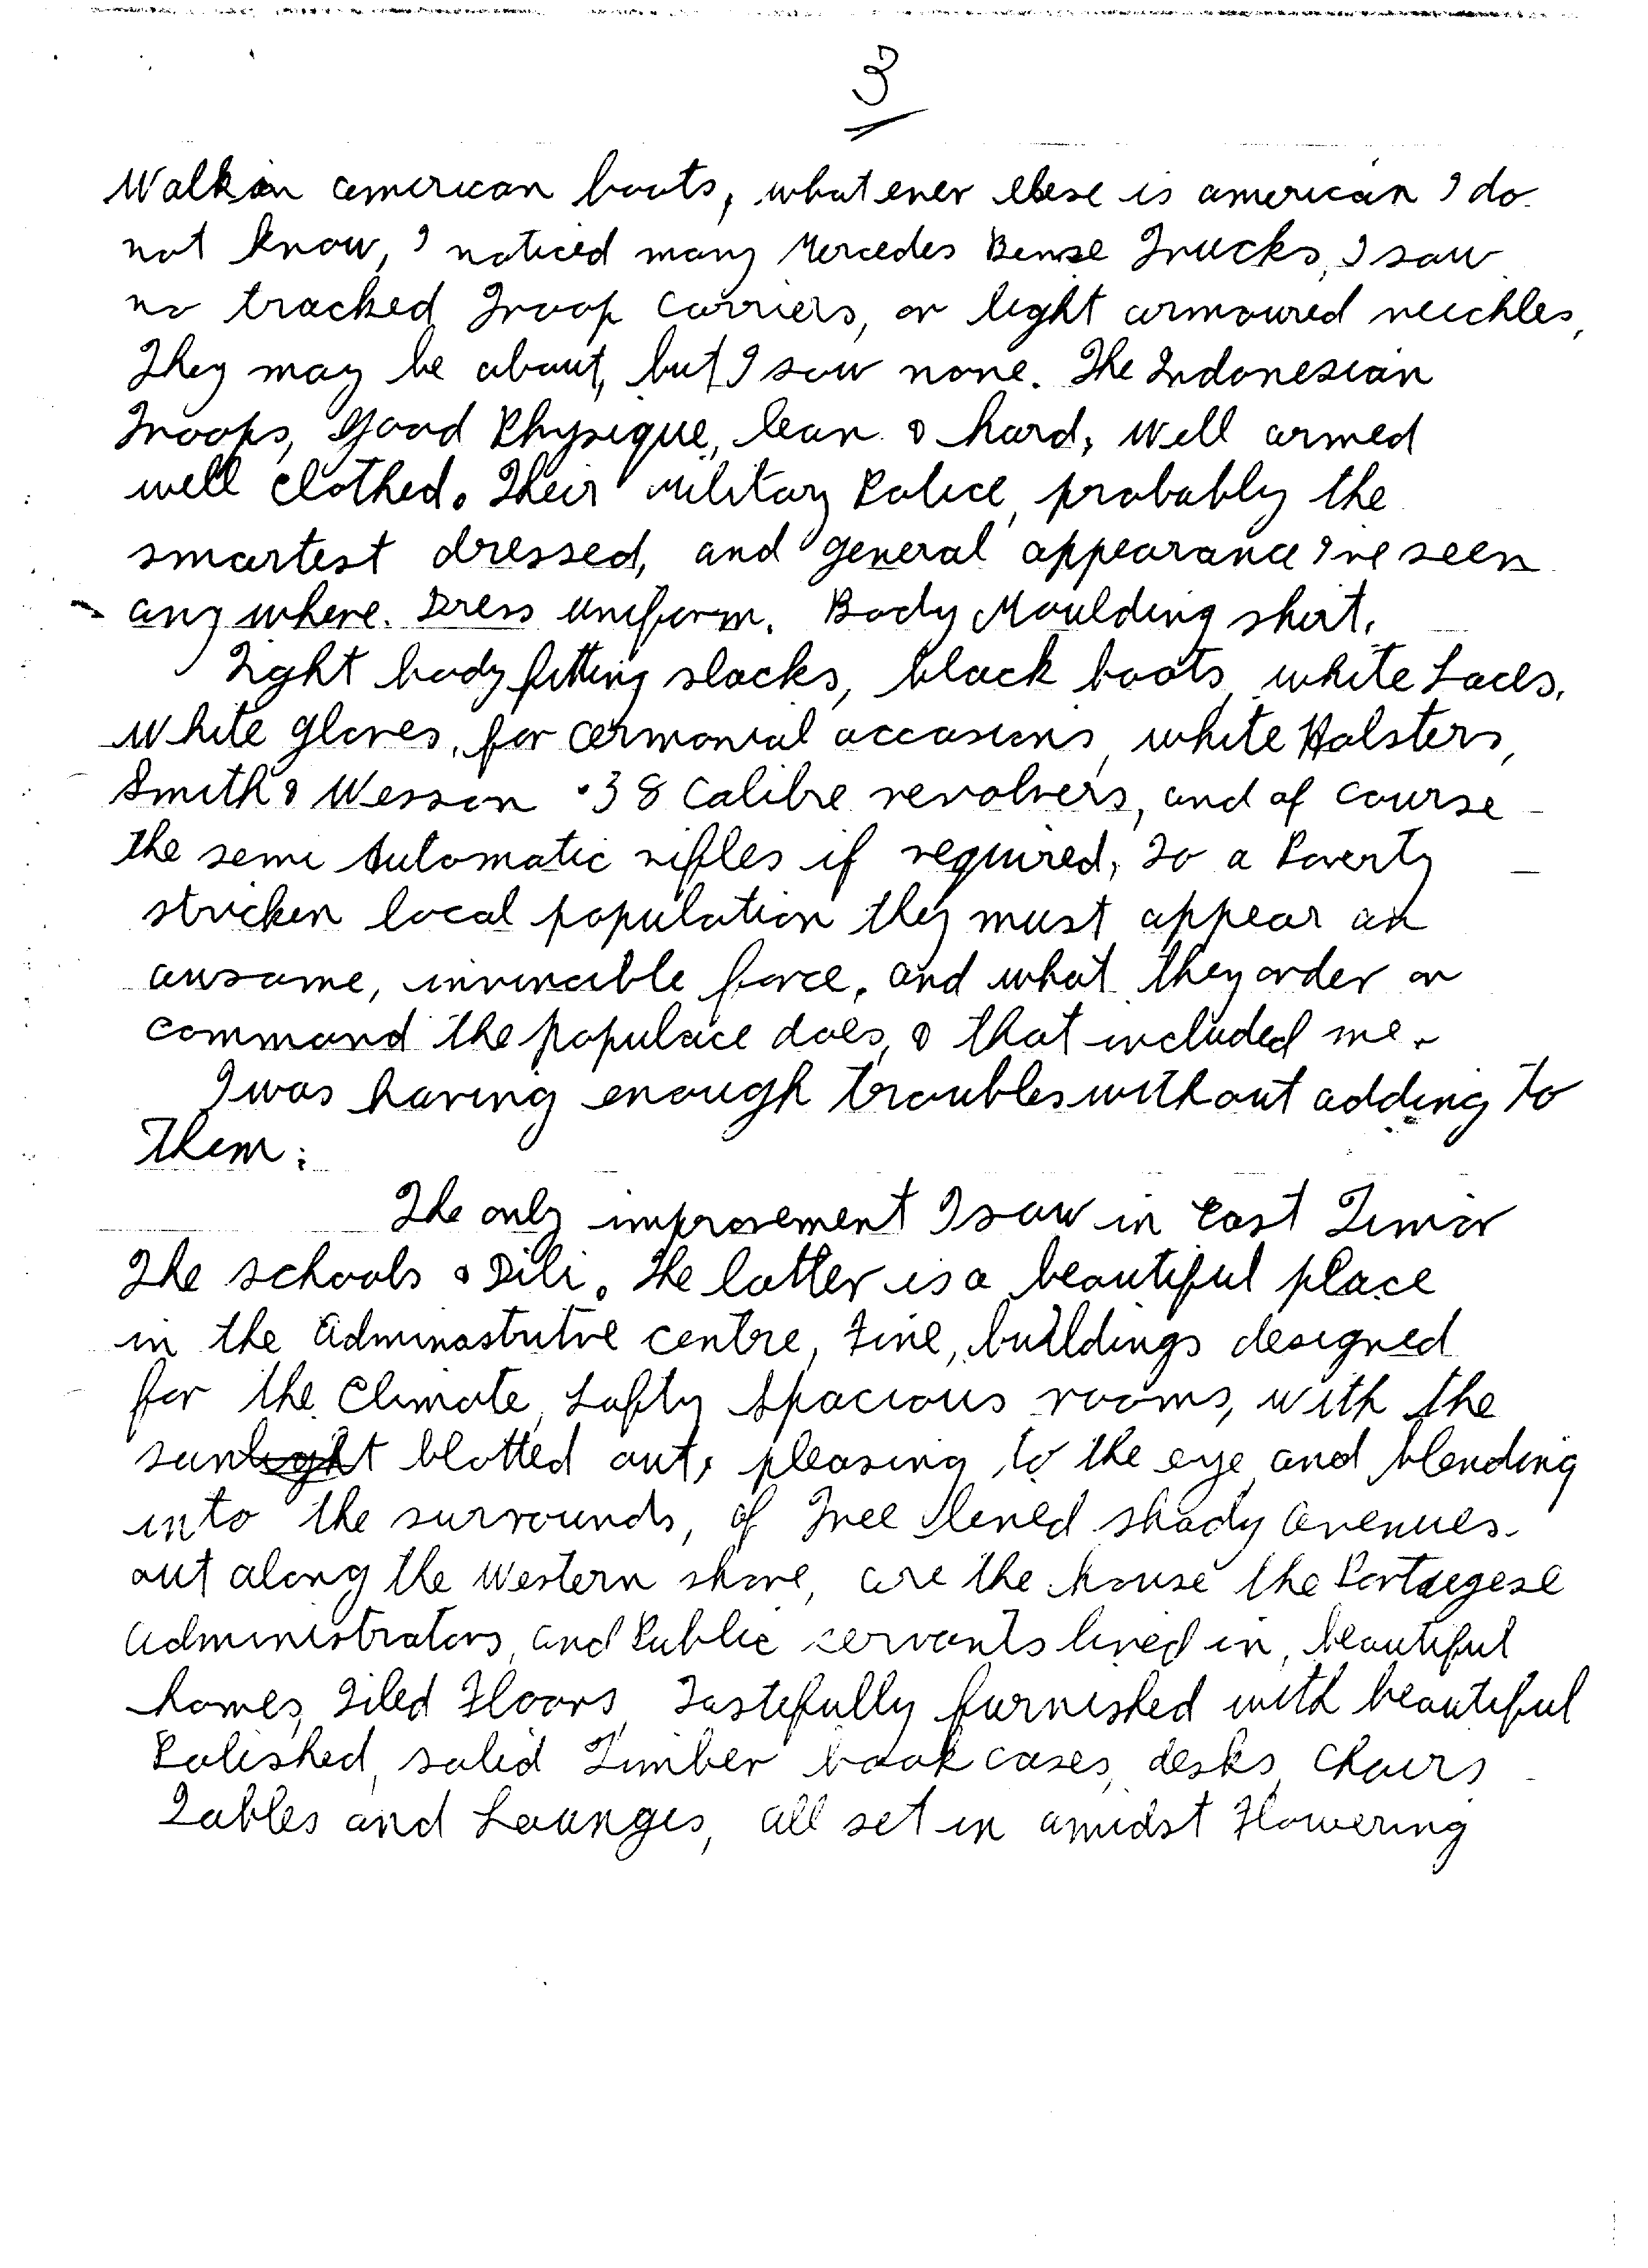 3
Walk in american boots, what ever else is american I do
not know, I noticed many Mercedes Bense Trucks, I saw
no tracked Troop Carriers, or light armoured veichles,
They may be about, but I saw none. The Indonesian
Troops, Good Physique, lean & hard, well armed
well clothed. Their Military Police, probably the
smartest dressed, and general appearance I've seen
any where. Dress uniform. Body Moulding shirt,
Tight body fitting slacks, black boots, white Laces,
White gloves, for cermonial occasions, white Holsters,
Smith & Wesson .38 Calibre revolvers, and of course
the semi Automatic rifles if required, To a Poverty
stricken local population they must appear an
awsome, invincible force, and what they order or
command the populace does, & that included me.
I was having enough troubles without adding to
Them:
The only improvement I saw in East Timor
The schools & Dili. The latter is a beautiful place
in the Adminastrutve centre, Fine, buildings designed
for the Climate, Lofty Spacious rooms, with the
sunlight blotted out, pleasing to the eye and blending
into the surrounds, of Tree lined shady avenues.
out along the Western shore, are the house the Portuegese
Administrators, and Public servants lived in, beautiful
homes, Tiled Floors, Tastefully furnished with beautiful
Polished, solid Timber book cases, desks, Chairs
Tables and Lounges, all set in amidst Flowering